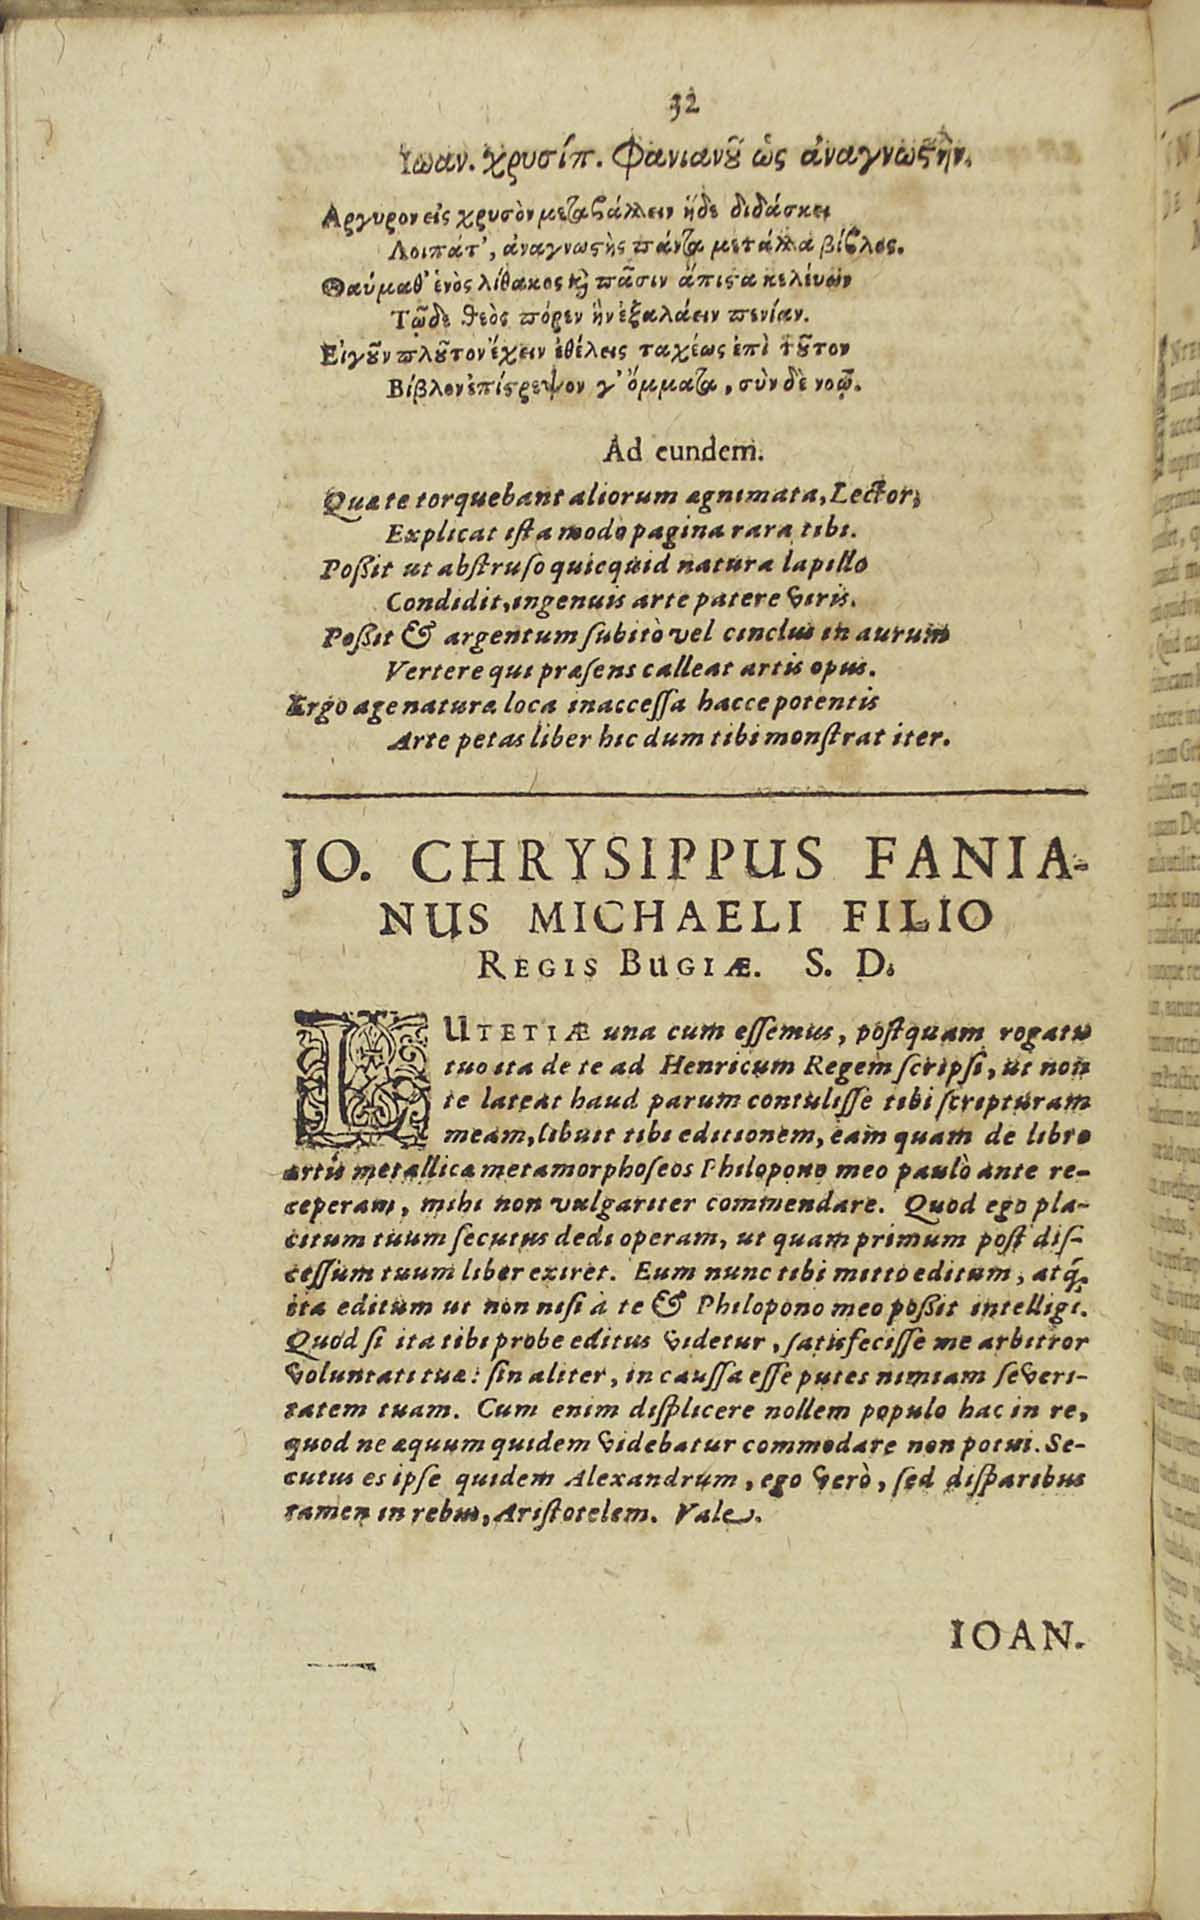 32
Ιωαν. χρυσίπ. Φανιανοῦ ὡς ἀναγνωςὴν.
Αργυρον εἰς χρυσὸν μεταβάλλειν ἥδε διδάσκει
Λοιπάτ', ἀναγνωςὴς πάντα μετάλλα βίβλος.
Θαύμαθ' ἑνὸς λίθακος καὶ πᾶσιν ἄπιςα κελεύων
Τῷδε θεὸς πόρεν ἣν ἐξαλάειν πενίαν.
Εἰ γοῦν πλοῦτον ἔχειν ἐθέλεις ταχέως ἐπὶ τοῦτον
Βίβλον ἐπίςρεψον γ' ὄμματα, σὺν δὲ νοῷ.
Ad eundem.
Quæ te torquebant aliorum ægnimata, Lector,
Explicat ista modo pagina rara tibi.
Poßit ut abstruso quicquid natura lapillo
Condidit, ingenuis arte patere viris.
Poßit & argentum subitò vel cinclus in aurum
Vertere qui præsens calleat artis opus.
Ergo age naturæ loca inaccessa hacce potentis
Arte petas liber hic dum tibi monstrat iter.
JO. CHRYSIPPUS FANIA-
NUS MICHAELI FILIO
REGIS BUGIÆ. S. D.
LUTETIÆ una cum essemus, postquam rogatu
tuo ita de te ad Henricum Regem scripsi, ut non
te lateat haud parum contulisse tibi scripturam
meam, libuit tibi editionem, eam quam de libro
artis metallicæ metamorphoseos Philopono meo paulò ante re-
ceperam, mihi non vulgariter commendare. Quod ego pla-
citum tuum secutus dedi operam, ut quam primum post dis-
cessum tuum liber exiret. Eum nunc tibi mitto editum, atq;
ita editum ut non nisi à te & Philopono meo poßit intelligi.
Quod si ita tibi probe editus videtur, satisfecisse me arbitror
voluntati tuæ: sin aliter, in caussa esse putes nimiam severi-
tatem tuam. Cum enim displicere nollem populo hac in re,
quod ne æquum quidem videbatur commodare non potui. Se-
cutus es ipse quidem Alexandrum, ego verò, sed disparibus
tamen in rebus, Aristotelem. Vale.
IOAN.